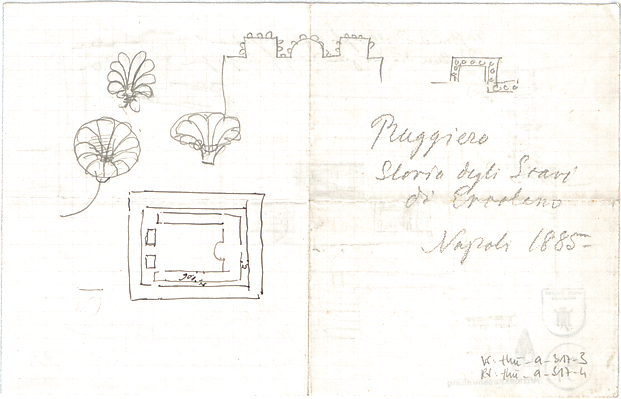 Ruggiero
Storia degli Scavi
di Ercolano
Napoli 1885
Vs: thü - a - 517 - 3
Rs: thü - a - 517 - 4